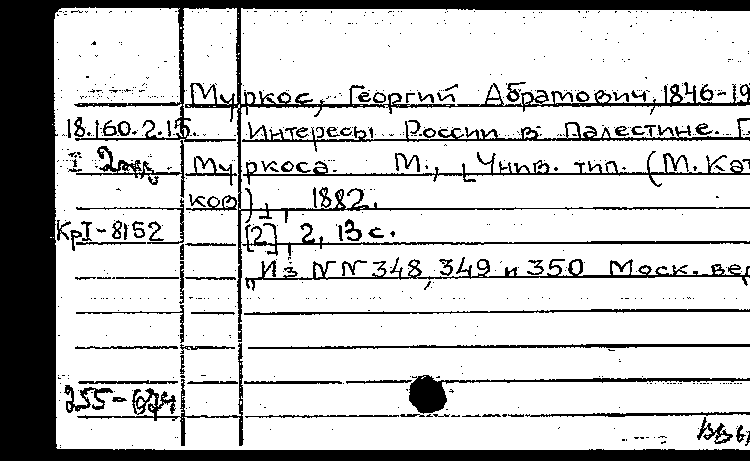 Муркос, Георгий Абрамович, 1846-19
18.160.2.15. Интересы России в Палестине. Г.
I 2 Муркоса. М., [Унив. тип. (М. Кат
ков)], 1882.
КрI-8152 [2], 2, 13 с.
"Из NN 348, 349 и 350 Моск. вед
255-